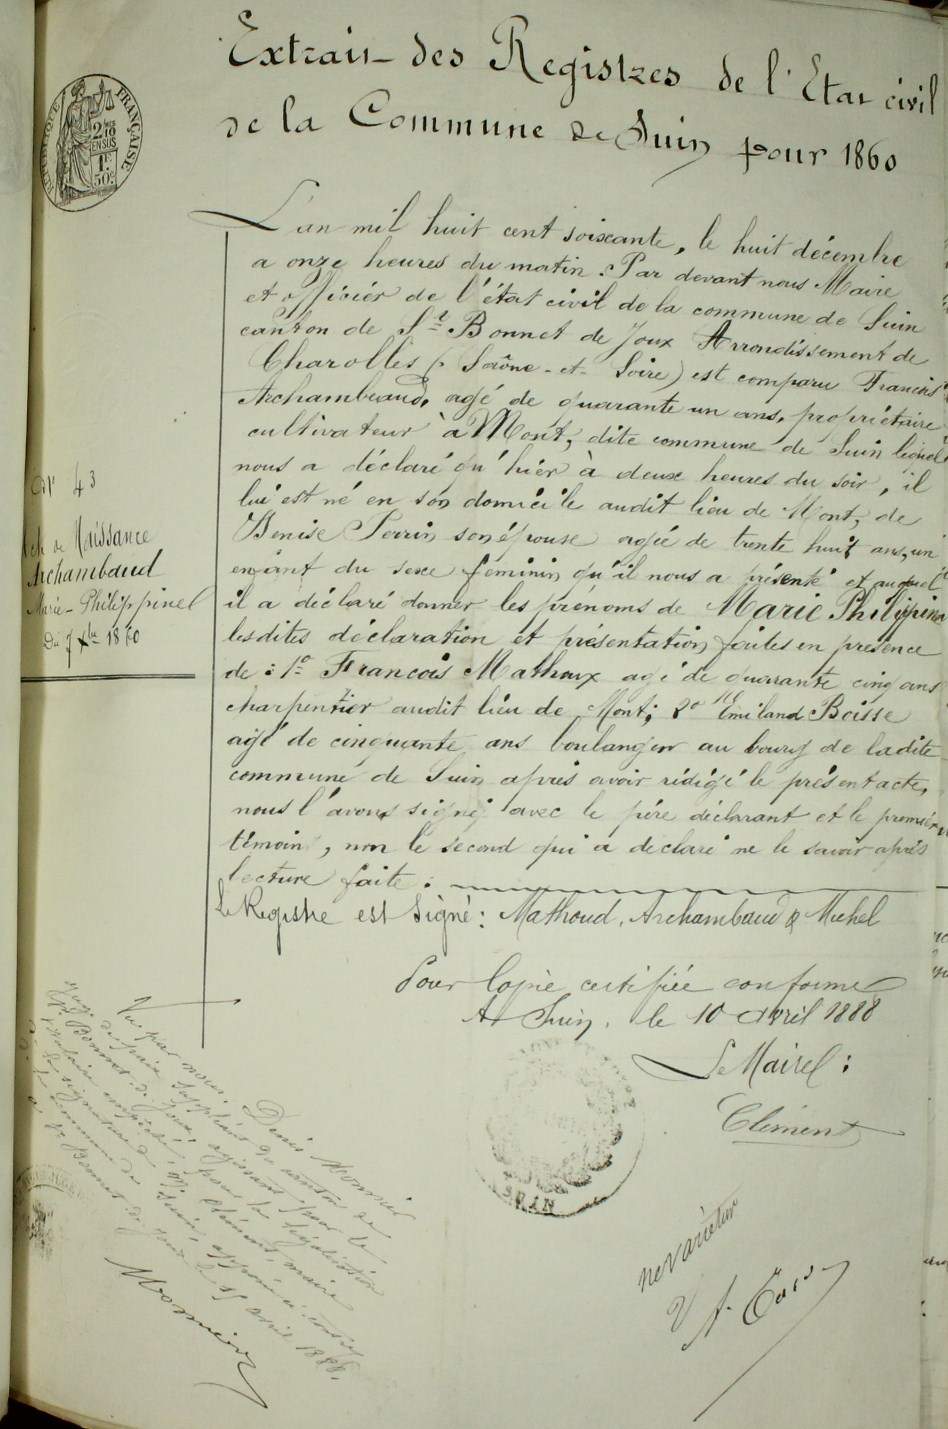 Extrait des Registres de l'Etat civil
de la Commune de Suin pour 1860
RÉPUBLIQUE FRANÇAISE
2/10 EN SUS
1F 50c
L'an mil huit cent soixante, le huit décembre
a onze heures du matin. Par devant nous Maire
et officier de l'état civil de la commune de Suin
canton de St Bonnet de Joux Arrondissement de
Charolles (Saône-et-Loire) est comparu Francois
Archambaud, agé de quarante un ans, propriétaire
cultivateur à Mont, dite commune de Suin lequel
nous a déclaré qu'hier à deux heures du soir, il
lui est né en son domicile audit lieu de Mont, de
Denise Perrin son épouse agée de trente huit ans, un
enfant du sexe féminin qu'il nous a présenté et auquel
il a déclaré donner les prénoms de Marie Philippine
lesdites déclaration et présentation faites en présence
de: 1o Francois Mathoux agé de quarante cinq ans
charpentier audit lieu de Mont; 2o Emiland Boisse
agé de cinquante ans boulanger au bourg de ladite
commune de Suin après avoir rédigé le présent acte,
nous l'avons signé avec le père déclarant et le premier
témoin, non le second qui a déclaré ne le savoir après
lecture faite.
Le Registre est signé: Mathoud, Archambaud & Michel
No 43
Acte de Naissance
Archambaud
Marie-Philippine
Du 7 Xbre 1860
Pour Copie certifiée conforme
A Suin, le 10 Avril 1888
Le Maire:
Clément
SUIN
Vu par nous, Denis Monnier
Juge de paix suppléant du canton de
St Bonnet de Joux, agissant pour le
titulaire empêché, pour la législation
de la signature de M. Clément, maire
de la commune de Suin, apposée ci-contre
à St Bonnet de Joux le 15 avril 1888.
Monnier
ne varietur